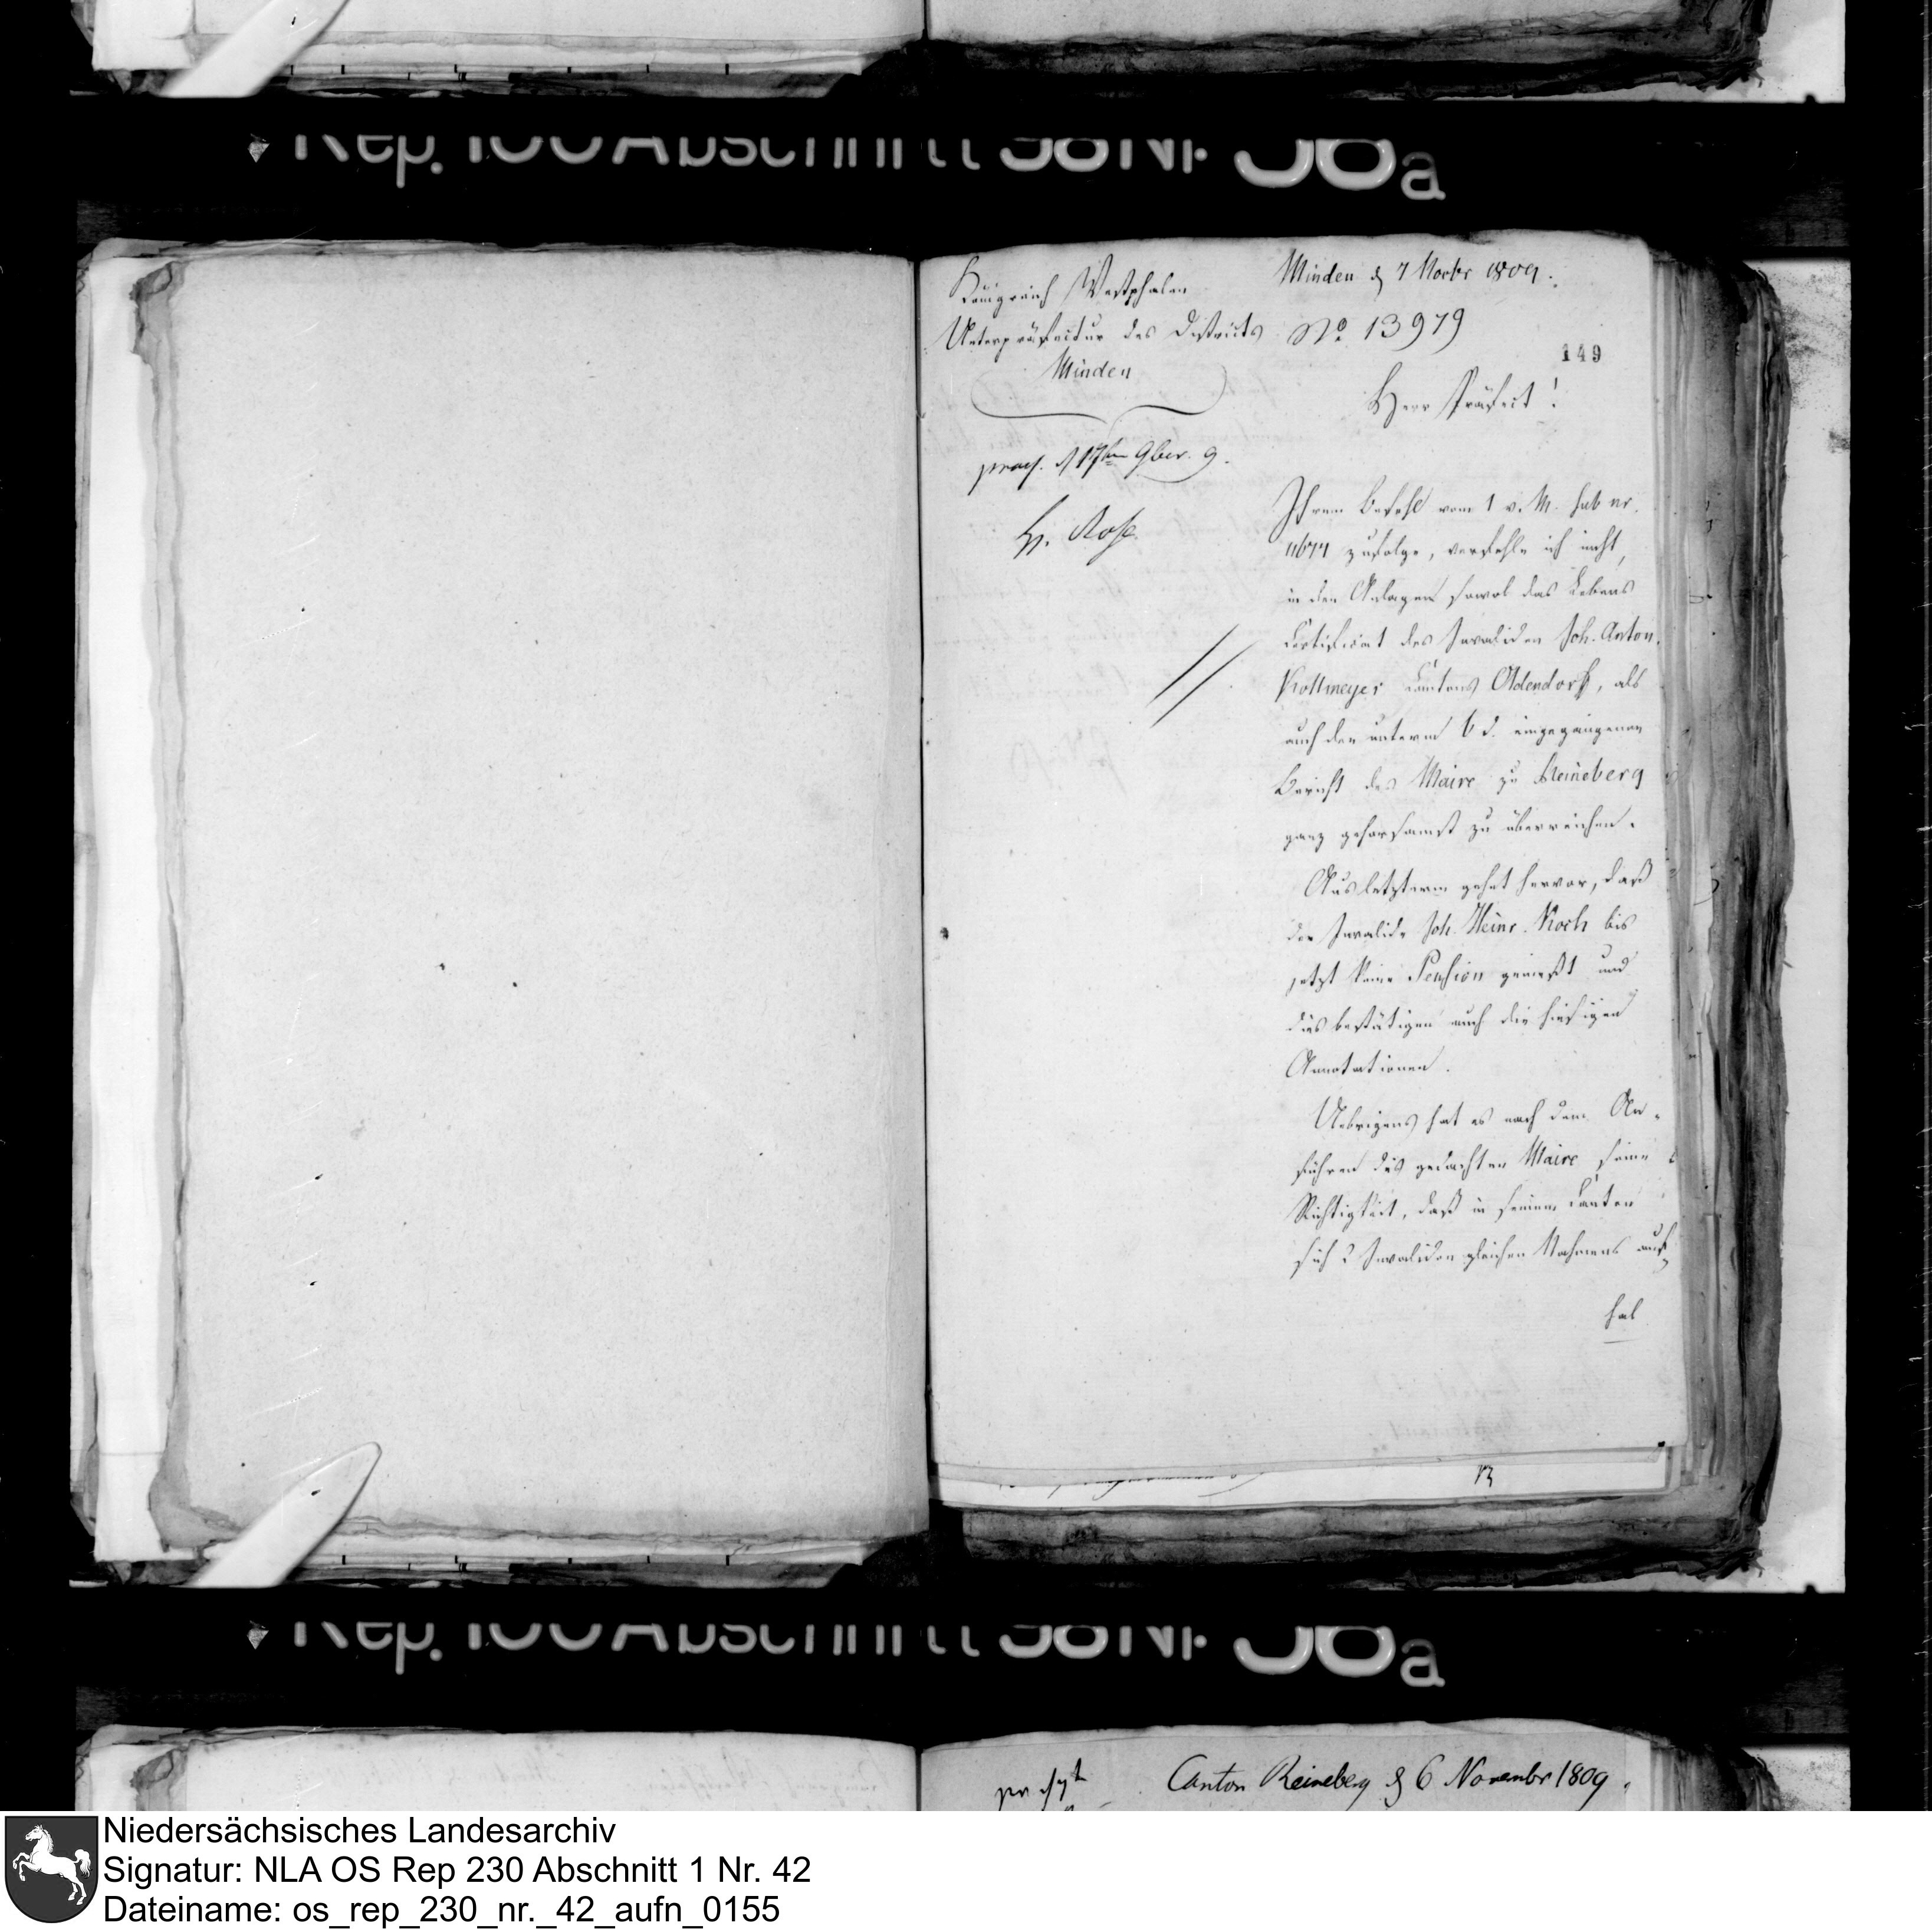 Rep. 100 Abschnitt 58 Nr. 38a
Königreich Westphalen
Unterpräfectur des Districts
Minden
Minden d 7 Novbr 1809.
No 13979
149
Herr Präfect!
praes. d 17ten 9ber. 9.
H. Rose
Ihrem Befehl vom 1 v. M. sub nr.
11671 zufolge, verfehle ich nicht,
in den Anlagen sowol das Lebens
Certificat des Invaliden Joh. Anton
Kottmeyer Cantons Oldendorf, als
auch den unterm 6 d. eingegangenen
Bericht des Maire zu Reineberg
ganz gehorsamst zu überreichen.
Aus letzterm gehet hervor, daß
der Invalide Joh. Heinr. Koch bis
jetzt keine Pension genießt und
dies bestätigen auch die hiesigen
Annotationen.
Uebrigens hat es nach dem An-
führen des gedachten Maire seine
Richtigkeit, daß in seinem Canton
sich 2 Invaliden gleichen Nahmens auf
hal
Rep. 100 Abschnitt 58 Nr. 38a
Canton Reineberg d 6 Novembr 1809.
Niedersächsisches Landesarchiv
Signatur: NLA OS Rep 230 Abschnitt 1 Nr. 42
Dateiname: os_rep_230_nr._42_aufn_0155